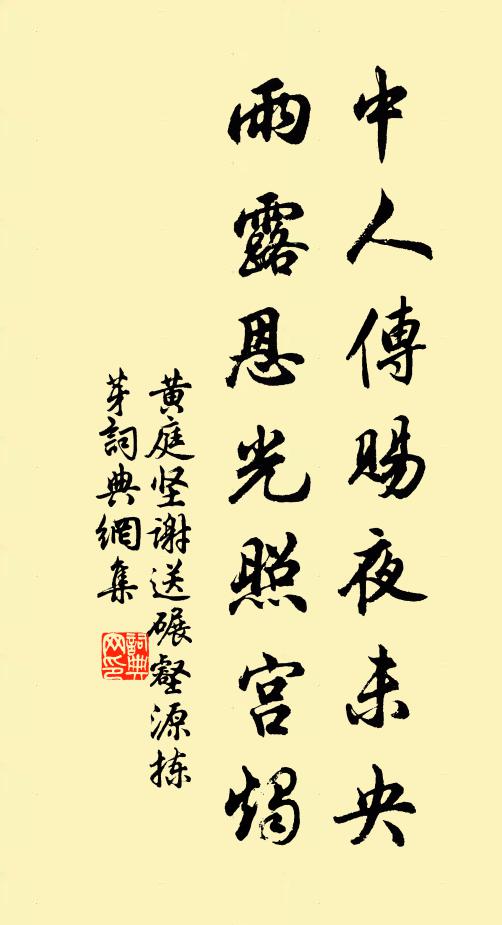 中人傳賜夜未央
雨露恩光照宫燭
黄庭坚謝送碾壑源拣
芽詞典網集
詞典網印